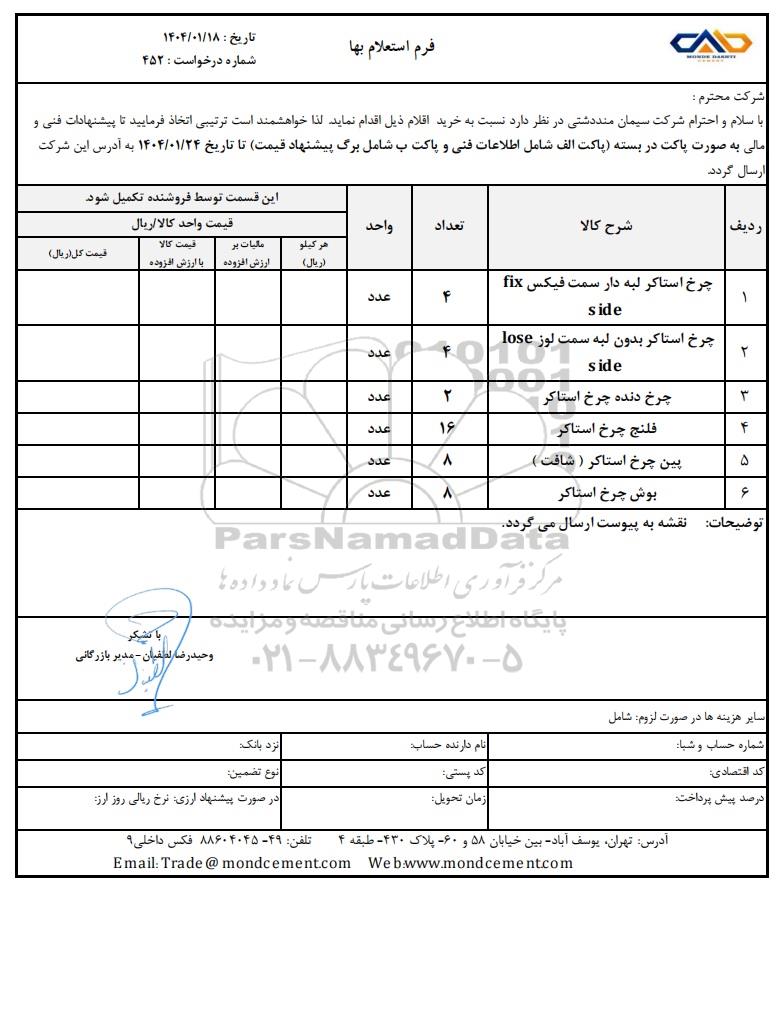 MONDE DASHTI
CEMENT
فرم استعلام بها
تاریخ : ۱۴۰۴/۰۱/۱۸
شماره درخواست : ۴۵۲
شرکت محترم :
با سلام و احترام شرکت سیمان منددشتی در نظر دارد نسبت به خرید اقلام ذیل اقدام نماید. لذا خواهشمند است ترتیبی اتخاذ فرمایید تا پیشنهادات فنی و
مالی به صورت پاکت در بسته (پاکت الف شامل اطلاعات فنی و پاکت ب شامل برگ پیشنهاد قیمت) تا تاریخ ۱۴۰۴/۰۱/۲۴ به آدرس این شرکت
ارسال گردد.
ردیف شرح کالا تعداد واحد این قسمت توسط فروشنده تکمیل شود.
قیمت واحد کالا/ریال
هر کیلو (ریال) مالیات بر ارزش افزوده قیمت کالا با ارزش افزوده قیمت کل(ریال)
۱ چرخ استاکر لبه دار سمت فیکس fix side ۴ عدد
۲ چرخ استاکر بدون لبه سمت لوز lose side ۴ عدد
۳ چرخ دنده چرخ استاکر ۲ عدد
۴ فلنج چرخ استاکر ۱۶ عدد
۵ پین چرخ استاکر ( شافت ) ۸ عدد
۶ بوش چرخ استاکر ۸ عدد
توضیحات: نقشه به پیوست ارسال می گردد.
ParsNamadData
مرکز فرآوری اطلاعات پارس نماد داده ها
پایگاه اطلاع رسانی مناقصه و مزایده
۰۲۱-۸۸۳۴۹۶۷۰-۵
با تشکر
وحیدرضا لطفیان - مدیر بازرگانی
سایر هزینه ها در صورت لزوم: شامل
شماره حساب و شبا: نام دارنده حساب: نزد بانک:
کد اقتصادی: کد پستی: نوع تضمین:
درصد پیش پرداخت: زمان تحویل: در صورت پیشنهاد ارزی: نرخ ریالی روز ارز:
آدرس: تهران، یوسف آباد- بین خیابان ۵۸ و ۶۰- پلاک ۴۳۰- طبقه ۴ تلفن: ۴۹- ۸۸۶۰۴۰۴۵ فکس داخلی۹
Email: Trade@mondcement.com Web:www.mondcement.com